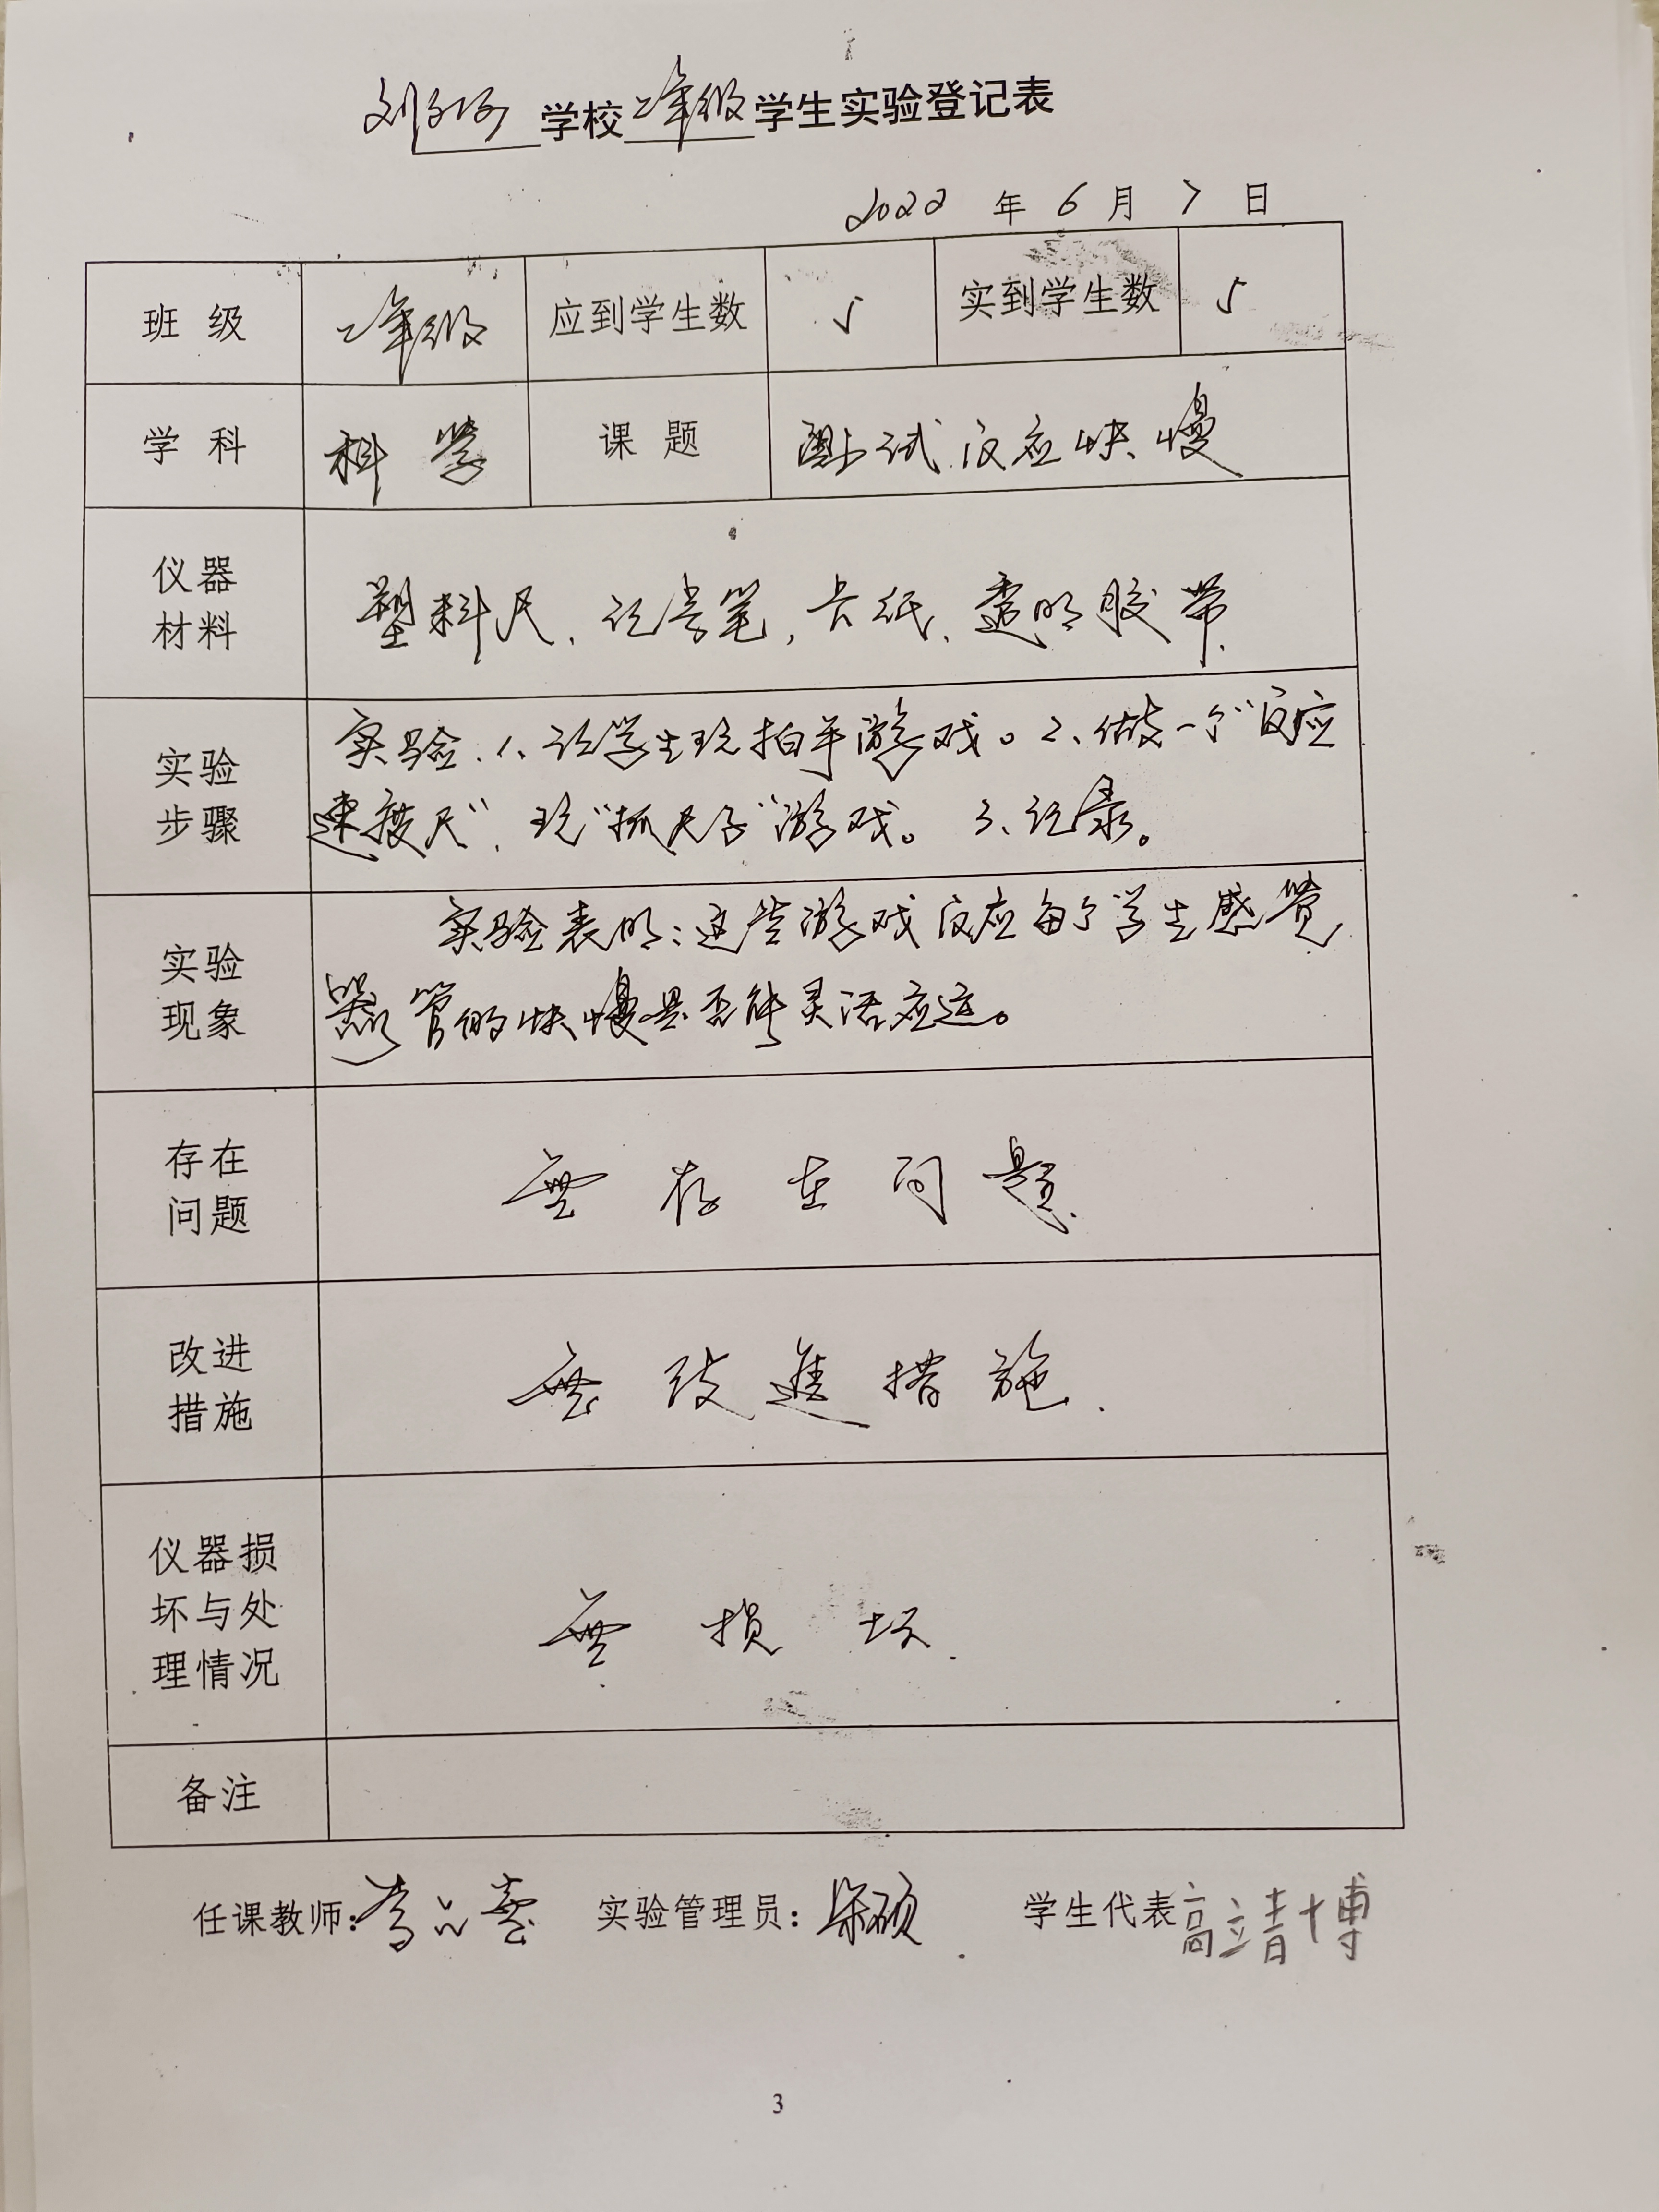 刘 学校二年级学生实验登记表
2022 年 6 月 7 日
班 级 二年级 应到学生数 5 实到学生数 5
学 科 科 学 课 题 测试反应快慢
仪器
材料
塑料尺、记号笔,卡纸、透明胶带.
实验
步骤
实验.1、让学生玩拍手游戏。2、做一个“反应
速度尺”,玩“抓尺子”游戏。 3、记录。
实验
现象
实验表明:这些游戏反应每个学生感觉
器官的快慢是否能灵活应运。
存在
问题
無 存 在 问 题.
改进
措施
無 改 進 措 施.
仪器损
坏与处
理情况
無 损 坏.
备注
任课教师: 李品 实验管理员: 硕 学生代表 高靖博
3